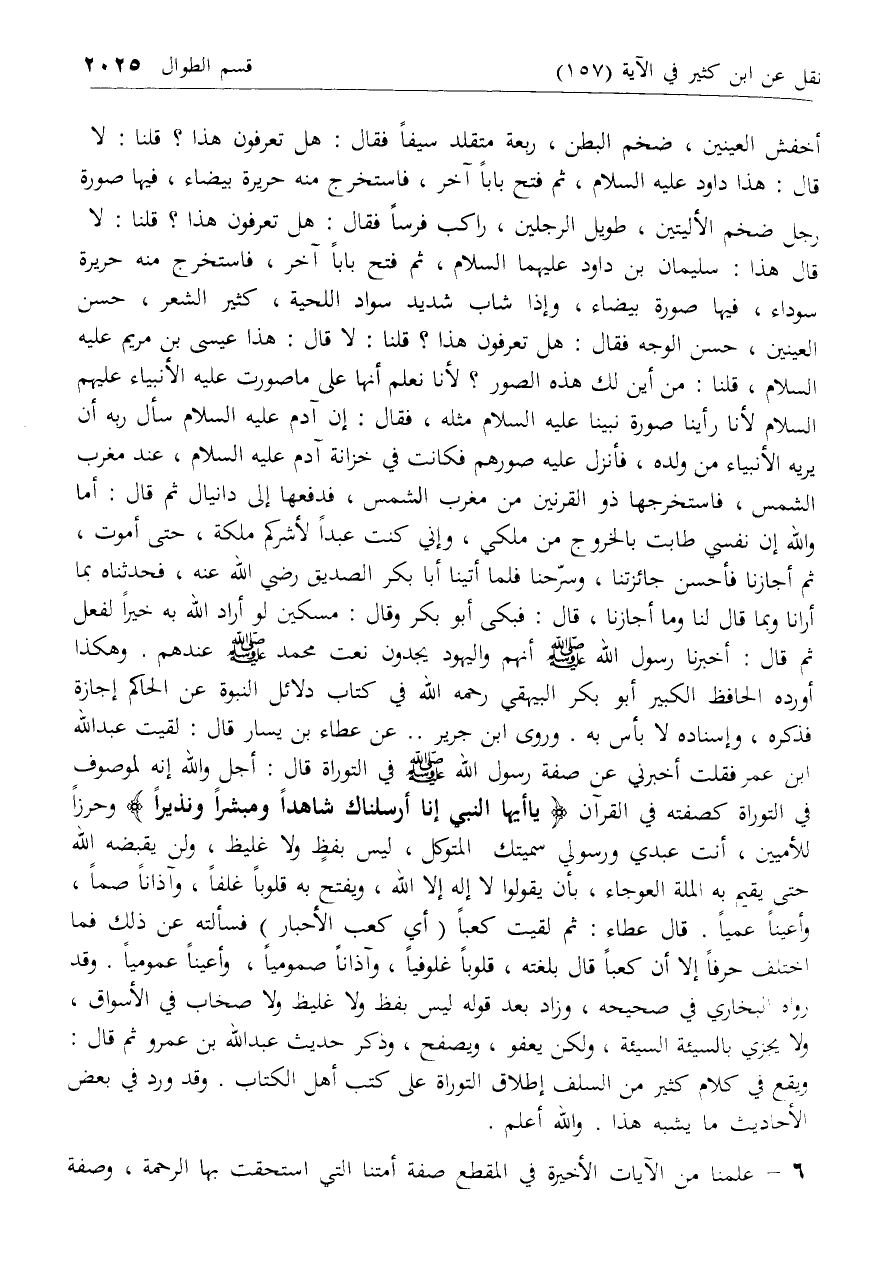 نقل عن ابن كثير في الآية (١٥٧) قسم الطوال ٢٠٢٥
أخفش العينين ، ضخم البطن ، ربعة متقلد سيفاً فقال : هل تعرفون هذا ؟ قلنا : لا
قال : هذا داود عليه السلام ، ثم فتح باباً آخر ، فاستخرج منه حريرة بيضاء ، فيها صورة
رجل ضخم الأليتين ، طويل الرجلين ، راكب فرساً فقال : هل تعرفون هذا ؟ قلنا : لا
قال هذا : سليمان بن داود عليهما السلام ، ثم فتح باباً آخر ، فاستخرج منه حريرة
سوداء ، فيها صورة بيضاء ، وإذا شاب شديد سواد اللحية ، كثير الشعر ، حسن
العينين ، حسن الوجه فقال : هل تعرفون هذا ؟ قلنا : لا قال : هذا عيسى بن مريم عليه
السلام ، قلنا : من أين لك هذه الصور ؟ لأنا نعلم أنها على ماصورت عليه الأنبياء عليهم
السلام لأنا رأينا صورة نبينا عليه السلام مثله ، فقال : إن آدم عليه السلام سأل ربه أن
يريه الأنبياء من ولده ، فأنزل عليه صورهم فكانت في خزانة آدم عليه السلام ، عند مغرب
الشمس ، فاستخرجها ذو القرنين من مغرب الشمس ، فدفعها إلى دانيال ثم قال : أما
والله إن نفسي طابت بالخروج من ملكي ، وإني كنت عبداً لأشركم ملكة ، حتى أموت ،
ثم أجازنا فأحسن جائزتنا ، وسرّحنا فلما أتينا أبا بكر الصديق رضي الله عنه ، فحدثناه بما
أرانا وبما قال لنا وما أجازنا ، قال : فبكى أبو بكر وقال : مسكين لو أراد الله به خيراً لفعل
ثم قال : أخبرنا رسول الله ﷺ أنهم واليهود يجدون نعت محمد ﷺ عندهم . وهكذا
أورده الحافظ الكبير أبو بكر البيهقي رحمه الله في كتاب دلائل النبوة عن الحاكم إجازة
فذكره ، وإسناده لا بأس به . وروى ابن جرير .. عن عطاء بن يسار قال : لقيت عبدالله
ابن عمر فقلت أخبرني عن صفة رسول الله ﷺ في التوراة قال : أجل والله إنه لموصوف
في التوراة كصفته في القرآن ﴿ ياأيها النبي إنا أرسلناك شاهداً ومبشراً ونذيراً ﴾ وحرزاً
للأميين ، أنت عبدي ورسولي سميتك المتوكل ، ليس بفظٍ ولا غليظ ، ولن يقبضه الله
حتى يقيم به الملة العوجاء ، بأن يقولوا لا إله إلا الله ، ويفتح به قلوباً غلفاً ، وآذاناً صماً ،
وأعيناً عمياً . قال عطاء : ثم لقيت كعباً ( أي كعب الأحبار ) فسألته عن ذلك فما
اختلف حرفاً إلا أن كعباً قال بلغته ، قلوباً غلوفياً ، وآذاناً صمومياً ، وأعيناً عمومياً . وقد
رواه البخاري في صحيحه ، وزاد بعد قوله ليس بفظ ولا غليظ ولا صخاب في الأسواق ،
ولا يجزي بالسيئة السيئة ، ولكن يعفو ، ويصفح ، وذكر حديث عبدالله بن عمرو ثم قال :
ويقع في كلام كثير من السلف إطلاق التوراة على كتب أهل الكتاب . وقد ورد في بعض
الأحاديث ما يشبه هذا . والله أعلم .
٦ – علمنا من الآيات الأخيرة في المقطع صفة أمتنا التي استحقت بها الرحمة ، وصفة